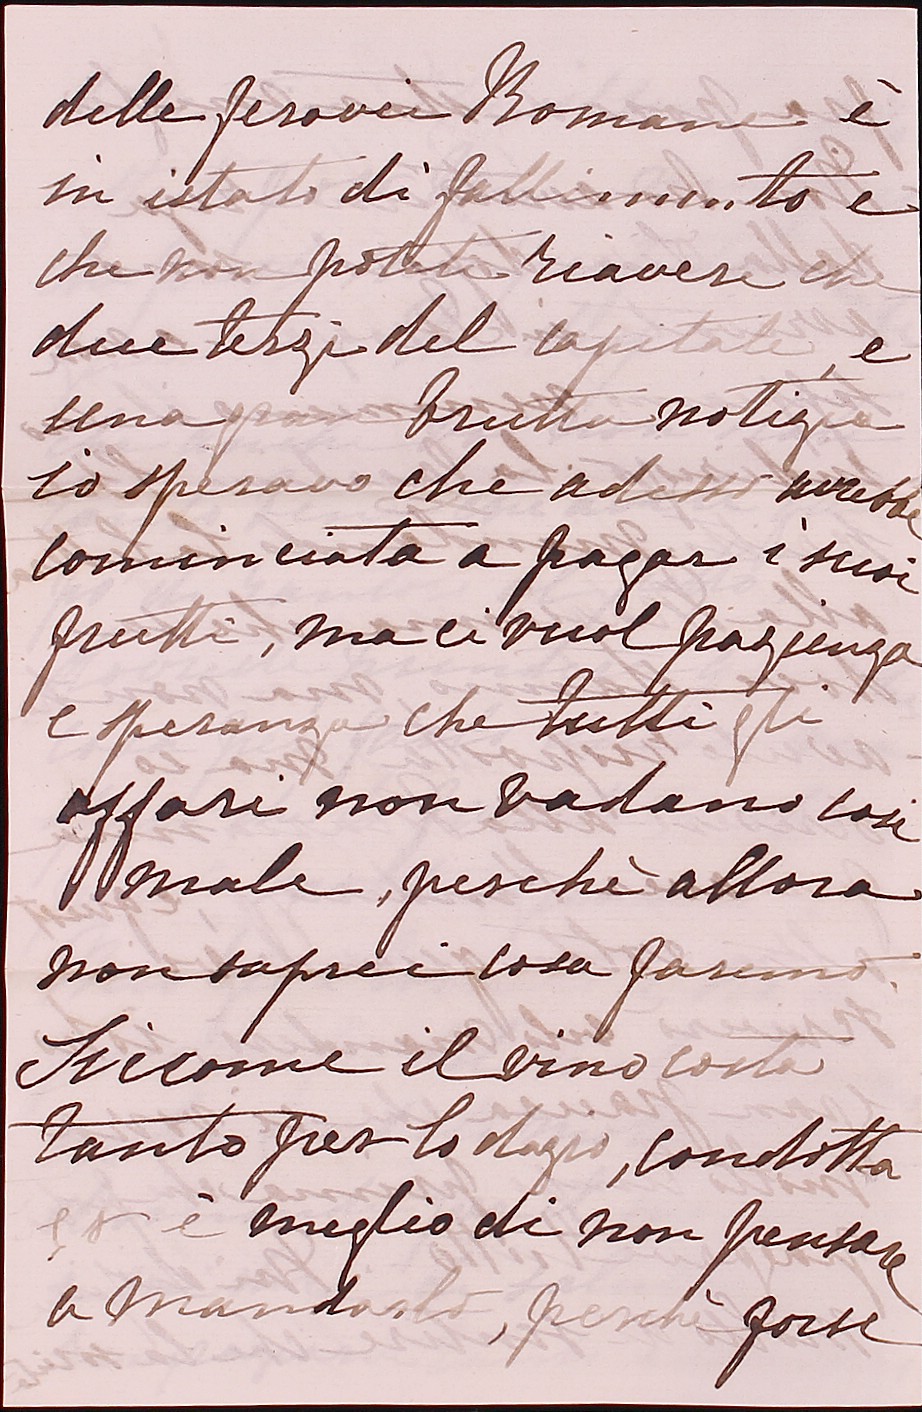 delle ferovie Romane è
in istato di fallimento e
che non potete riavere che
due terzi del capitale, e
una gran brutta notizia
io speravo che adesso avrebbe
cominciata a pagar i suoi
frutti, ma ci vuol pazienza
e speranza che tutti gli
affari non vadano cosi
male, perchè allora
non saprei cosa faremo.
Siccome il vino costa
tanto per lo dazio, condotta
è meglio di non pensare
a mandarlo, perchè forse